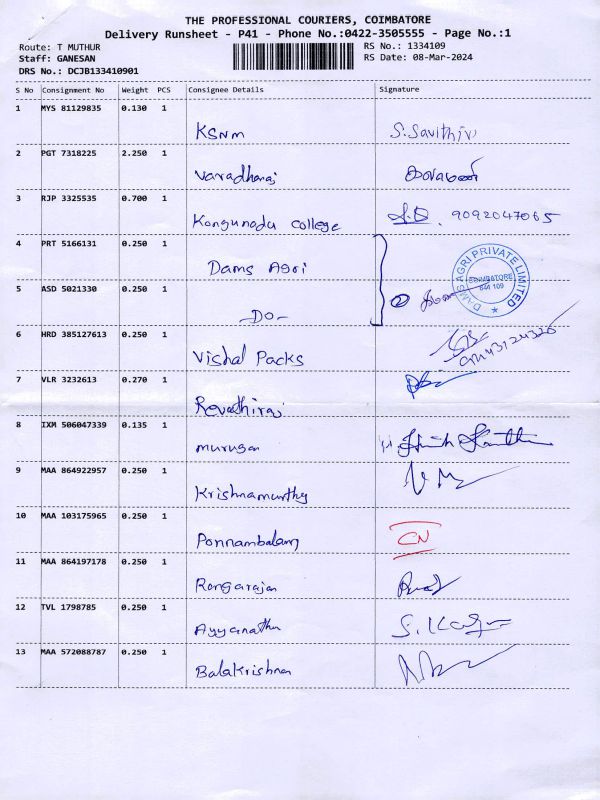 THE PROFESSIONAL COURIERS, COIMBATORE
Delivery Runsheet - P41 - Phone No.:0422-3505555 - Page No.:1
Route: T MUTHUR
RS No.: 1334109
Staff: GANESAN
RS Date: 08-Mar-2024
DRS No.: DCJB133410901
S No Consignment No Weight PCS Consignee Details Signature
1 MYS 81129835 0.130 1
KSNM S. Savithiri
2 PGT 7318225 2.250 1
Varadharaj
3 RJP 3325535 0.700 1
Kongunadu College 9092047065
4 PRT 5166131 0.250 1
Dams Agri
DAMS AGRI PRIVATE LIMITED
COIMBATORE
641 109
5 ASD 5021330 0.250 1
-DO-
6 HRD 385127613 0.250 1
Vishal Packs
7 VLR 3232613 0.270 1
Revathiraj
8 IXM 506047339 0.135 1
Murugan
9 MAA 864922957 0.250 1
Krishnamurthy
10 MAA 103175965 0.250 1
Ponnambalam CN
11 MAA 864197178 0.250 1
Rangarajan
12 TVL 1798785 0.250 1
Ayyanathan
13 MAA 572088787 0.250 1
Balakrishnan